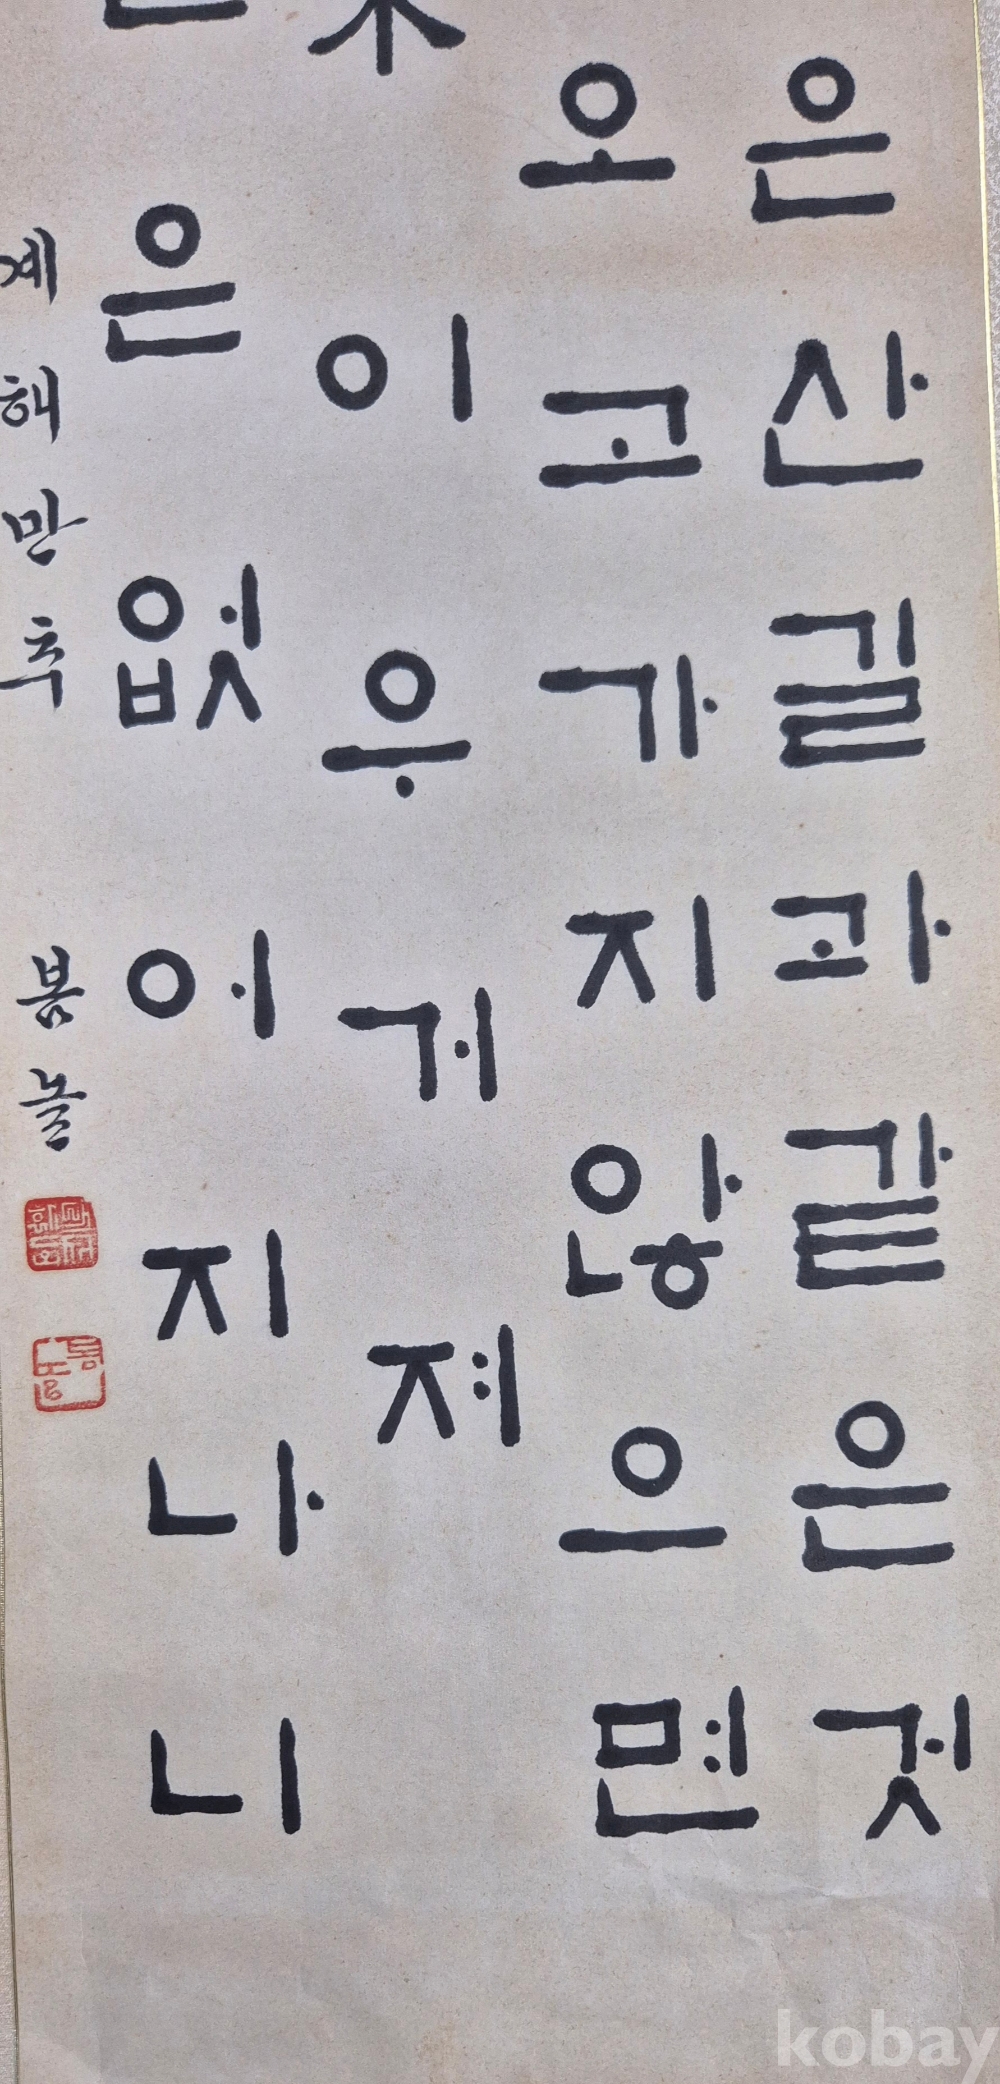 은 산 길 과 같 은 것
오 고 가 지 않 으 면
이 우 거 져
은 없 어 지 나 니
계 해 만 추 봄 눌
kobay